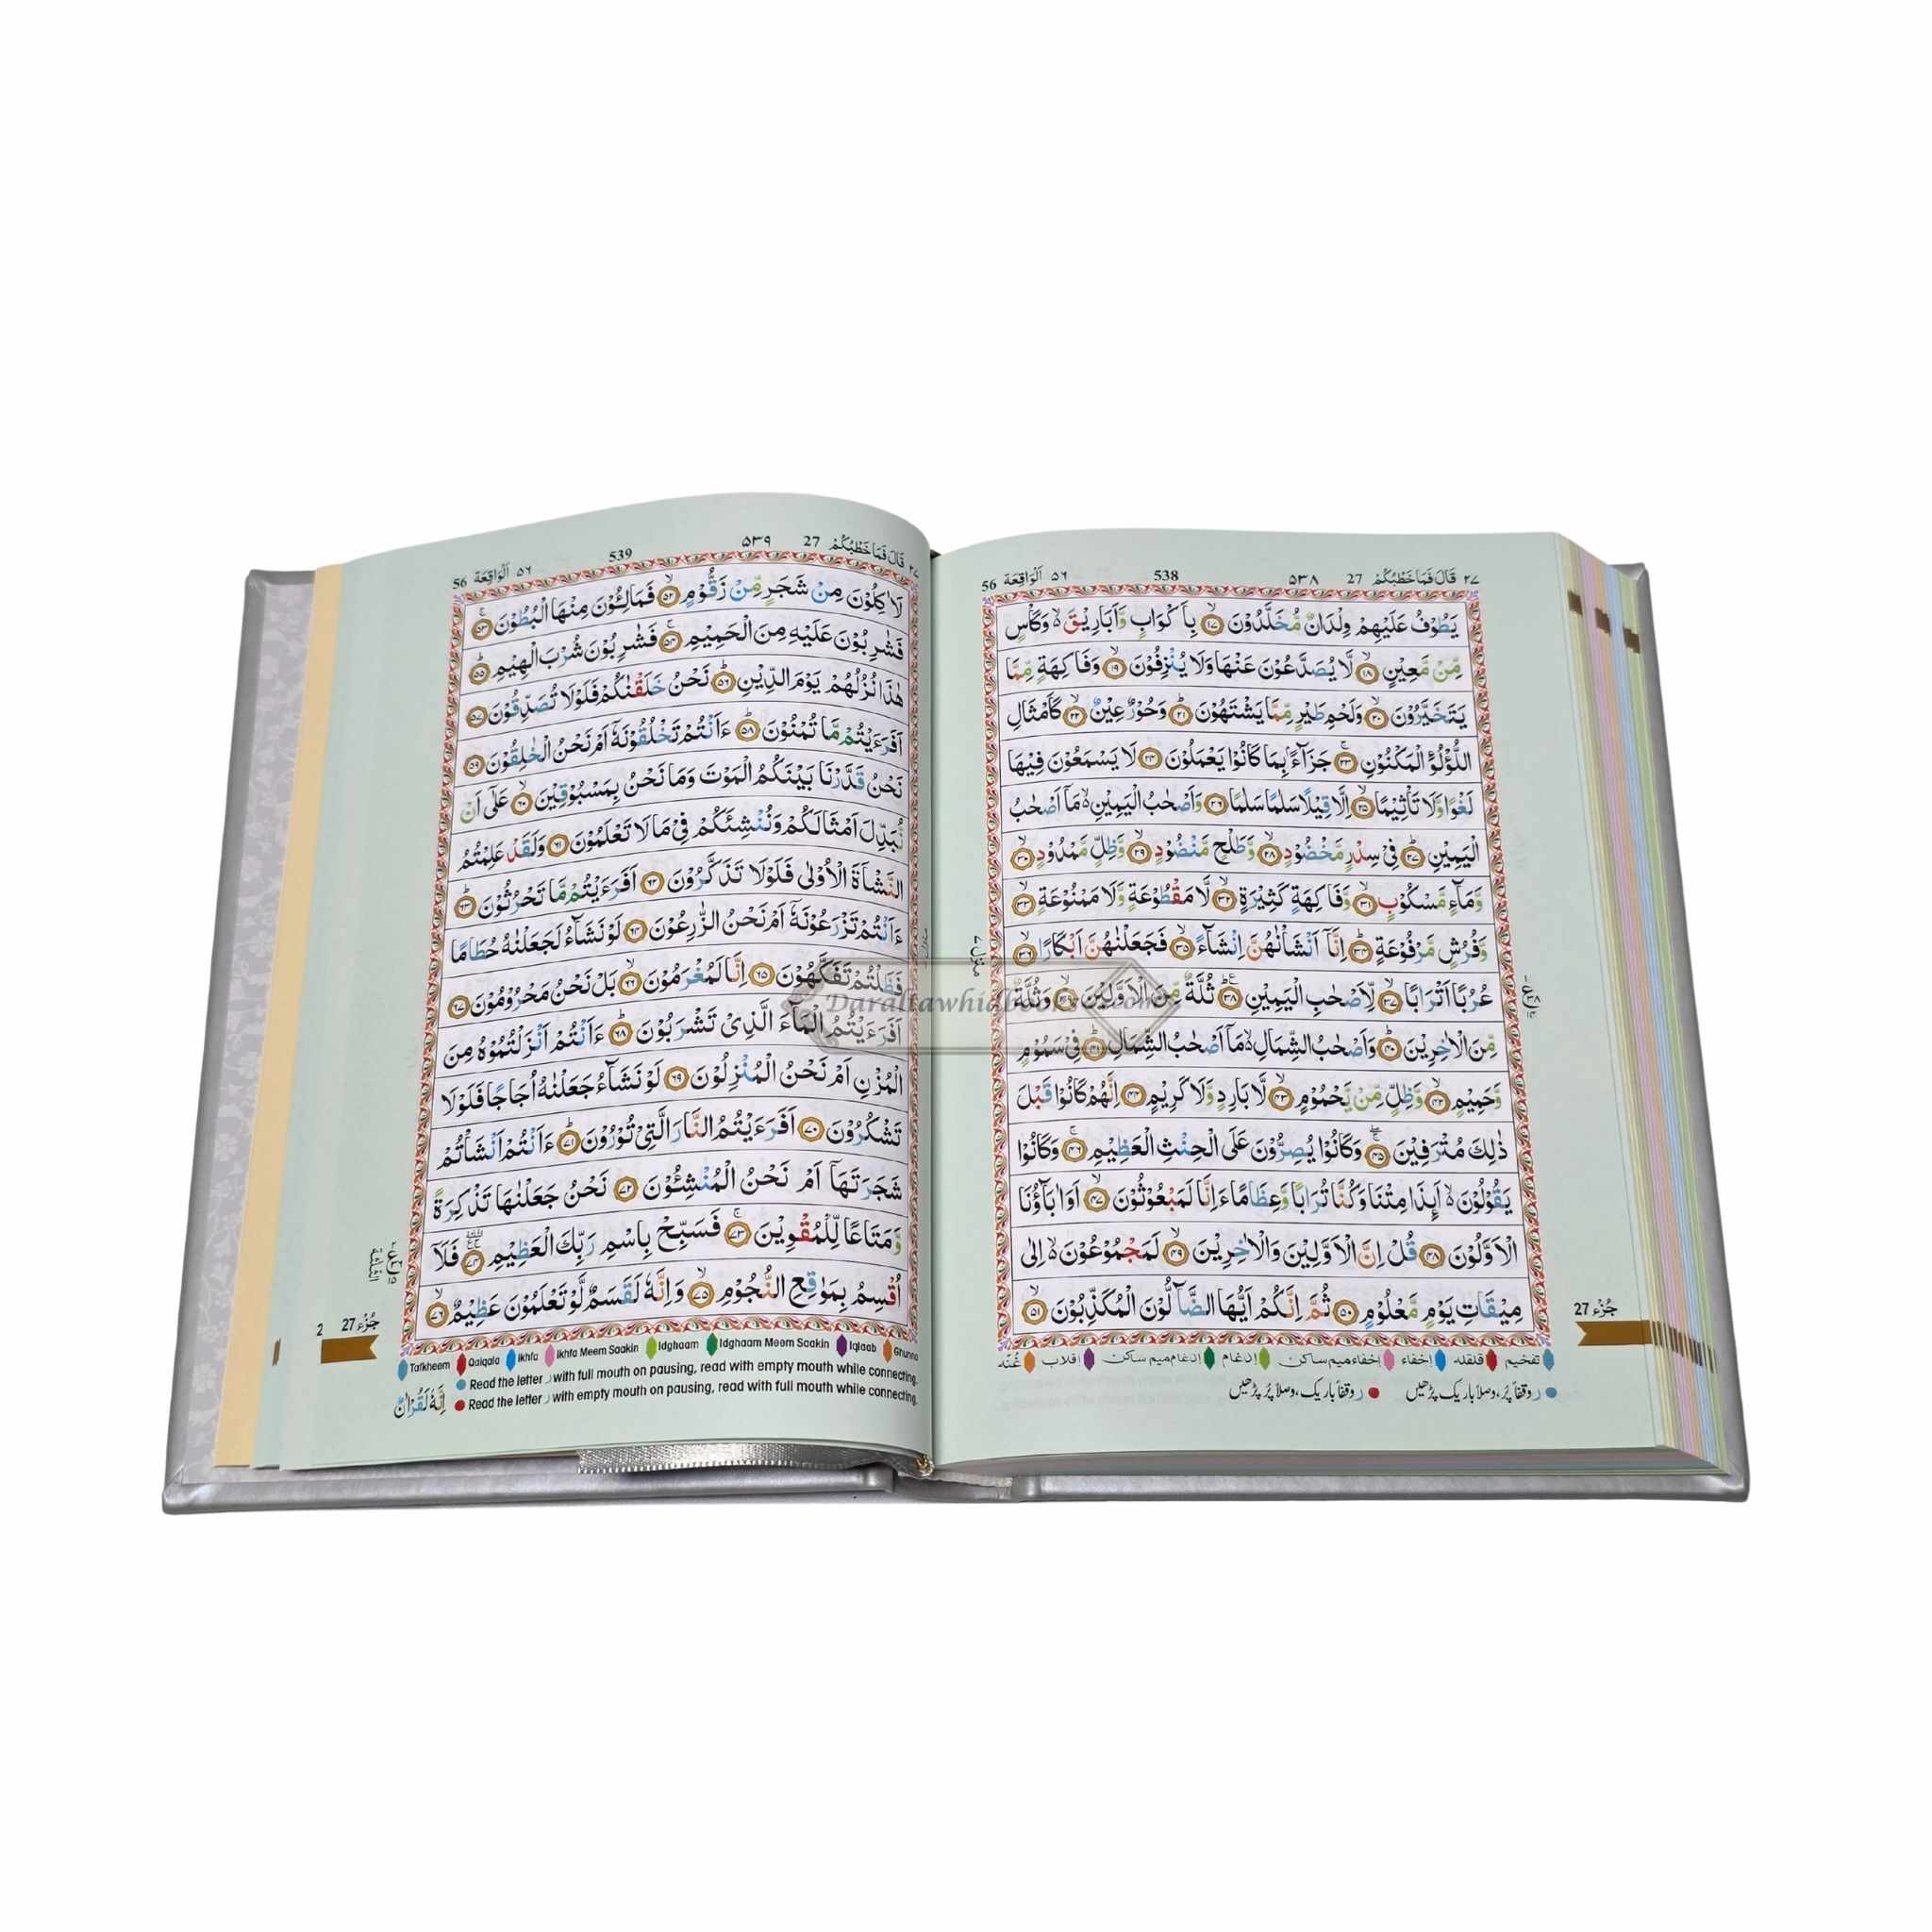 ٢٧ قَالَ فَمَا خَطْبُكُمْ 27 ٥٣٨ 538 ٥٦ اَلْوَاقِعَة 56
يَطُوْفُ عَلَيْهِمْ وِلْدَانٌ مُّخَلَّدُوْنَ ۙ‏﴿١٧﴾ بِاَكْوَابٍ وَّاَبَارِيْقَ ۙ وَكَاْسٍ
مِّنْ مَّعِيْنٍ ۙ‏﴿١٨﴾ لَّا يُصَدَّعُوْنَ عَنْهَا وَلَا يُنْزِفُوْنَ ۙ‏﴿١٩﴾ وَفَاكِهَةٍ مِّمَّا
يَتَخَيَّرُوْنَ ۙ‏﴿٢٠﴾ وَلَحْمِ طَيْرٍ مِّمَّا يَشْتَهُوْنَ ؕ‏﴿٢١﴾ وَحُوْرٌ عِيْنٌ ۙ‏﴿٢٢﴾ كَاَمْثَالِ
اللُّؤْلُؤِ الْمَكْنُوْنِ ۚ‏﴿٢٣﴾ جَزَآءًۢ بِمَا كَانُوْا يَعْمَلُوْنَ‏﴿٢٤﴾ لَا يَسْمَعُوْنَ فِيْهَا
لَغْوًا وَّلَا تَاْثِيْمًا ۙ‏﴿٢٥﴾ اِلَّا قِيْلًا سَلٰمًا سَلٰمًا‏﴿٢٦﴾ وَاَصْحٰبُ الْيَمِيْنِ ۙ مَاۤ اَصْحٰبُ
الْيَمِيْنِ ؕ‏﴿٢٧﴾ فِيْ سِدْرٍ مَّخْضُوْدٍ ۙ‏﴿٢٨﴾ وَّطَلْحٍ مَّنْضُوْدٍ ۙ‏﴿٢٩﴾ وَّظِلٍّ مَّمْدُوْدٍ ۙ‏﴿٣٠﴾
وَّمَآءٍ مَّسْكُوْبٍ ۙ‏﴿٣١﴾ وَّفَاكِهَةٍ كَثِيْرَةٍ ۙ‏﴿٣٢﴾ لَّا مَقْطُوْعَةٍ وَّلَا مَمْنُوْعَةٍ ۙ‏﴿٣٣﴾
وَّفُرُشٍ مَّرْفُوْعَةٍ ؕ‏﴿٣٤﴾ اِنَّاۤ اَنْشَاْنٰهُنَّ اِنْشَآءً ۙ‏﴿٣٥﴾ فَجَعَلْنٰهُنَّ اَبْكَارًا ۙ‏﴿٣٦﴾
عُرُبًا اَتْرَابًا ۙ‏﴿٣٧﴾ لِّاَصْحٰبِ الْيَمِيْنِ ؕ‏﴿٣٨﴾ ثُلَّةٌ مِّنَ الْاَوَّلِيْنَ ۙ‏﴿٣٩﴾ وَثُلَّةٌ
مِّنَ الْاٰخِرِيْنَ ؕ‏﴿٤٠﴾ وَاَصْحٰبُ الشِّمَالِ ۙ مَاۤ اَصْحٰبُ الشِّمَالِ ؕ‏﴿٤١﴾ فِيْ سَمُوْمٍ
وَّحَمِيْمٍ ۙ‏﴿٤٢﴾ وَّظِلٍّ مِّنْ يَّحْمُوْمٍ ۙ‏﴿٤٣﴾ لَّا بَارِدٍ وَّلَا كَرِيْمٍ‏﴿٤٤﴾ اِنَّهُمْ كَانُوْا قَبْلَ
ذٰلِكَ مُتْرَفِيْنَ ۚ‏﴿٤٥﴾ وَكَانُوْا يُصِرُّوْنَ عَلَى الْحِنْثِ الْعَظِيْمِ ۚ‏﴿٤٦﴾ وَكَانُوْا
يَقُوْلُوْنَ ۙ اَئِذَا مِتْنَا وَكُنَّا تُرَابًا وَّعِظَامًا ءَاِنَّا لَمَبْعُوْثُوْنَ ۙ‏﴿٤٧﴾ اَوَاٰبَآؤُنَا
الْاَوَّلُوْنَ‏﴿٤٨﴾ قُلْ اِنَّ الْاَوَّلِيْنَ وَالْاٰخِرِيْنَ ۙ‏﴿٤٩﴾ لَمَجْمُوْعُوْنَ ۙ اِلٰى
مِيْقَاتِ يَوْمٍ مَّعْلُوْمٍ‏﴿٥٠﴾ ثُمَّ اِنَّكُمْ اَيُّهَا الضَّآلُّوْنَ الْمُكَذِّبُوْنَ ۙ‏﴿٥١﴾
منزل ٧
جُزْء 27
تفخیم قلقله إخفاء إخفاء میم ساکن إدغام إدغام میم ساکن اقلاب غُنّه
ر وقفاً پُر، وصلاً باریک پڑھیں ر وقفاً باریک، وصلاً پُر پڑھیں
٢٧ قَالَ فَمَا خَطْبُكُمْ 27 ٥٣٩ 539 ٥٦ اَلْوَاقِعَة 56
لَاٰكِلُوْنَ مِنْ شَجَرٍ مِّنْ زَقُّوْمٍ ۙ‏﴿٥٢﴾ فَمَالِـُٔوْنَ مِنْهَا الْبُطُوْنَ ۚ‏﴿٥٣﴾
فَشٰرِبُوْنَ عَلَيْهِ مِنَ الْحَمِيْمِ ۚ‏﴿٥٤﴾ فَشٰرِبُوْنَ شُرْبَ الْهِيْمِ ؕ‏﴿٥٥﴾
هٰذَا نُزُلُهُمْ يَوْمَ الدِّيْنِ ؕ‏﴿٥٦﴾ نَحْنُ خَلَقْنٰكُمْ فَلَوْلَا تُصَدِّقُوْنَ‏﴿٥٧﴾
اَفَرَءَيْتُمْ مَّا تُمْنُوْنَ ؕ‏﴿٥٨﴾ ءَاَنْتُمْ تَخْلُقُوْنَهٗۤ اَمْ نَحْنُ الْخٰلِقُوْنَ‏﴿٥٩﴾
نَحْنُ قَدَّرْنَا بَيْنَكُمُ الْمَوْتَ وَمَا نَحْنُ بِمَسْبُوْقِيْنَ ۙ‏﴿٦٠﴾ عَلٰۤى اَنْ
نُّبَدِّلَ اَمْثَالَكُمْ وَنُنْشِئَكُمْ فِيْ مَا لَا تَعْلَمُوْنَ‏﴿٦١﴾ وَلَقَدْ عَلِمْتُمُ
النَّشْاَةَ الْاُوْلٰى فَلَوْلَا تَذَكَّرُوْنَ‏﴿٦٢﴾ اَفَرَءَيْتُمْ مَّا تَحْرُثُوْنَ ؕ‏﴿٦٣﴾
ءَاَنْتُمْ تَزْرَعُوْنَهٗۤ اَمْ نَحْنُ الزّٰرِعُوْنَ‏﴿٦٤﴾ لَوْ نَشَآءُ لَجَعَلْنٰهُ حُطَامًا
فَظَلْتُمْ تَفَكَّهُوْنَ‏﴿٦٥﴾ اِنَّا لَمُغْرَمُوْنَ ۙ‏﴿٦٦﴾ بَلْ نَحْنُ مَحْرُوْمُوْنَ‏﴿٦٧﴾
اَفَرَءَيْتُمُ الْمَآءَ الَّذِيْ تَشْرَبُوْنَ ؕ‏﴿٦٨﴾ ءَاَنْتُمْ اَنْزَلْتُمُوْهُ مِنَ
الْمُزْنِ اَمْ نَحْنُ الْمُنْزِلُوْنَ‏﴿٦٩﴾ لَوْ نَشَآءُ جَعَلْنٰهُ اُجَاجًا فَلَوْلَا
تَشْكُرُوْنَ‏﴿٧٠﴾ اَفَرَءَيْتُمُ النَّارَ الَّتِيْ تُوْرُوْنَ ؕ‏﴿٧١﴾ ءَاَنْتُمْ اَنْشَاْتُمْ
شَجَرَتَهَاۤ اَمْ نَحْنُ الْمُنْشِـُٔوْنَ‏﴿٧٢﴾ نَحْنُ جَعَلْنٰهَا تَذْكِرَةً
وَّمَتَاعًا لِّلْمُقْوِيْنَ ۚ‏﴿٧٣﴾ فَسَبِّحْ بِاسْمِ رَبِّكَ الْعَظِيْمِ‏﴿٧٤﴾ فَلَاۤ
اُقْسِمُ بِمَوٰقِعِ النُّجُوْمِ ۙ‏﴿٧٥﴾ وَاِنَّهٗ لَقَسَمٌ لَّوْ تَعْلَمُوْنَ عَظِيْمٌ ۙ‏﴿٧٦﴾
2 27 جُزْء
Tafkheem Qalqala Ikhfa Ikhfa Meem Saakin Idghaam Idghaam Meem Saakin Iqlaab Ghunna
Read the letter ر with full mouth on pausing, read with empty mouth while connecting.
Read the letter ر with empty mouth on pausing, read with full mouth while connecting.
اِنَّهٗ لَقُرْاٰنٌ
Daraltawhidbooks.com